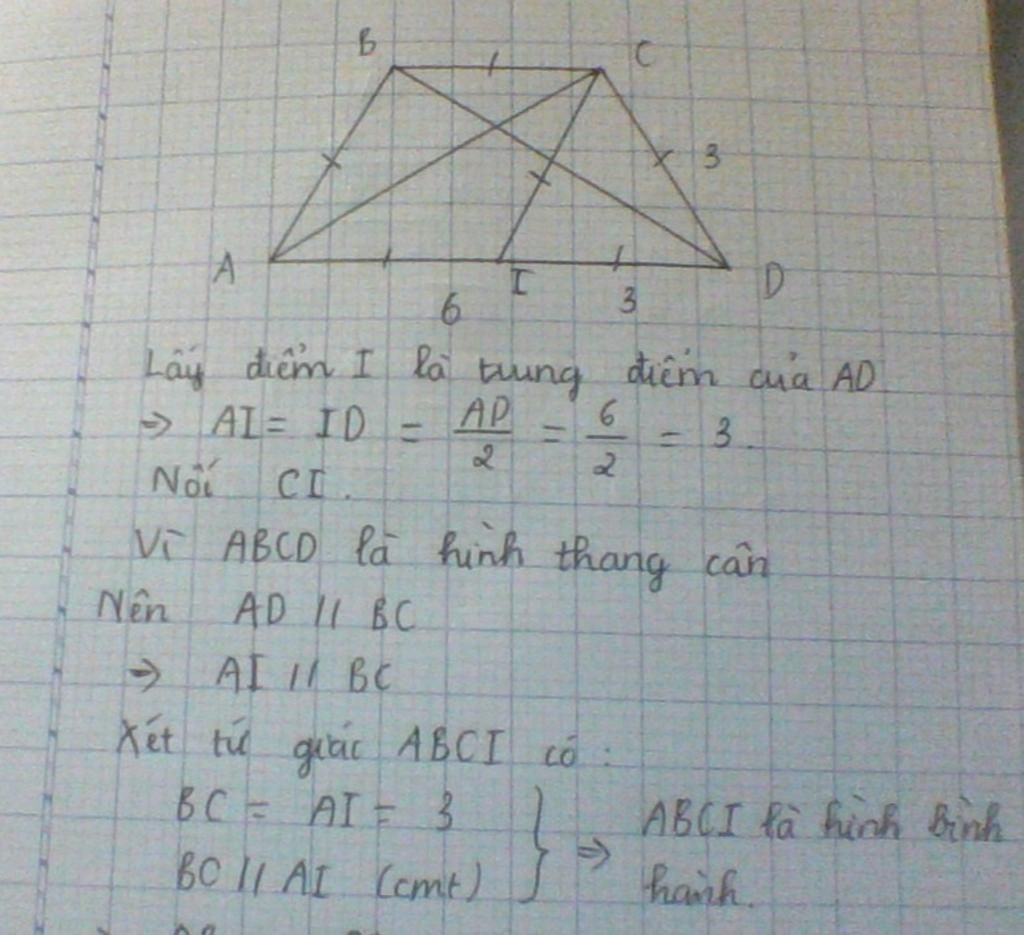 B C
3
A I D
6 3
Lấy điểm I là trung điểm của AD
=> AI = ID = AD/2 = 6/2 = 3.
Nối CI.
Vì ABCD là hình thang cân
Nên AD // BC
=> AI // BC
Xét tứ giác ABCI có:
BC = AI = 3 } => ABCI là hình bình
BC // AI (cmt) hành.